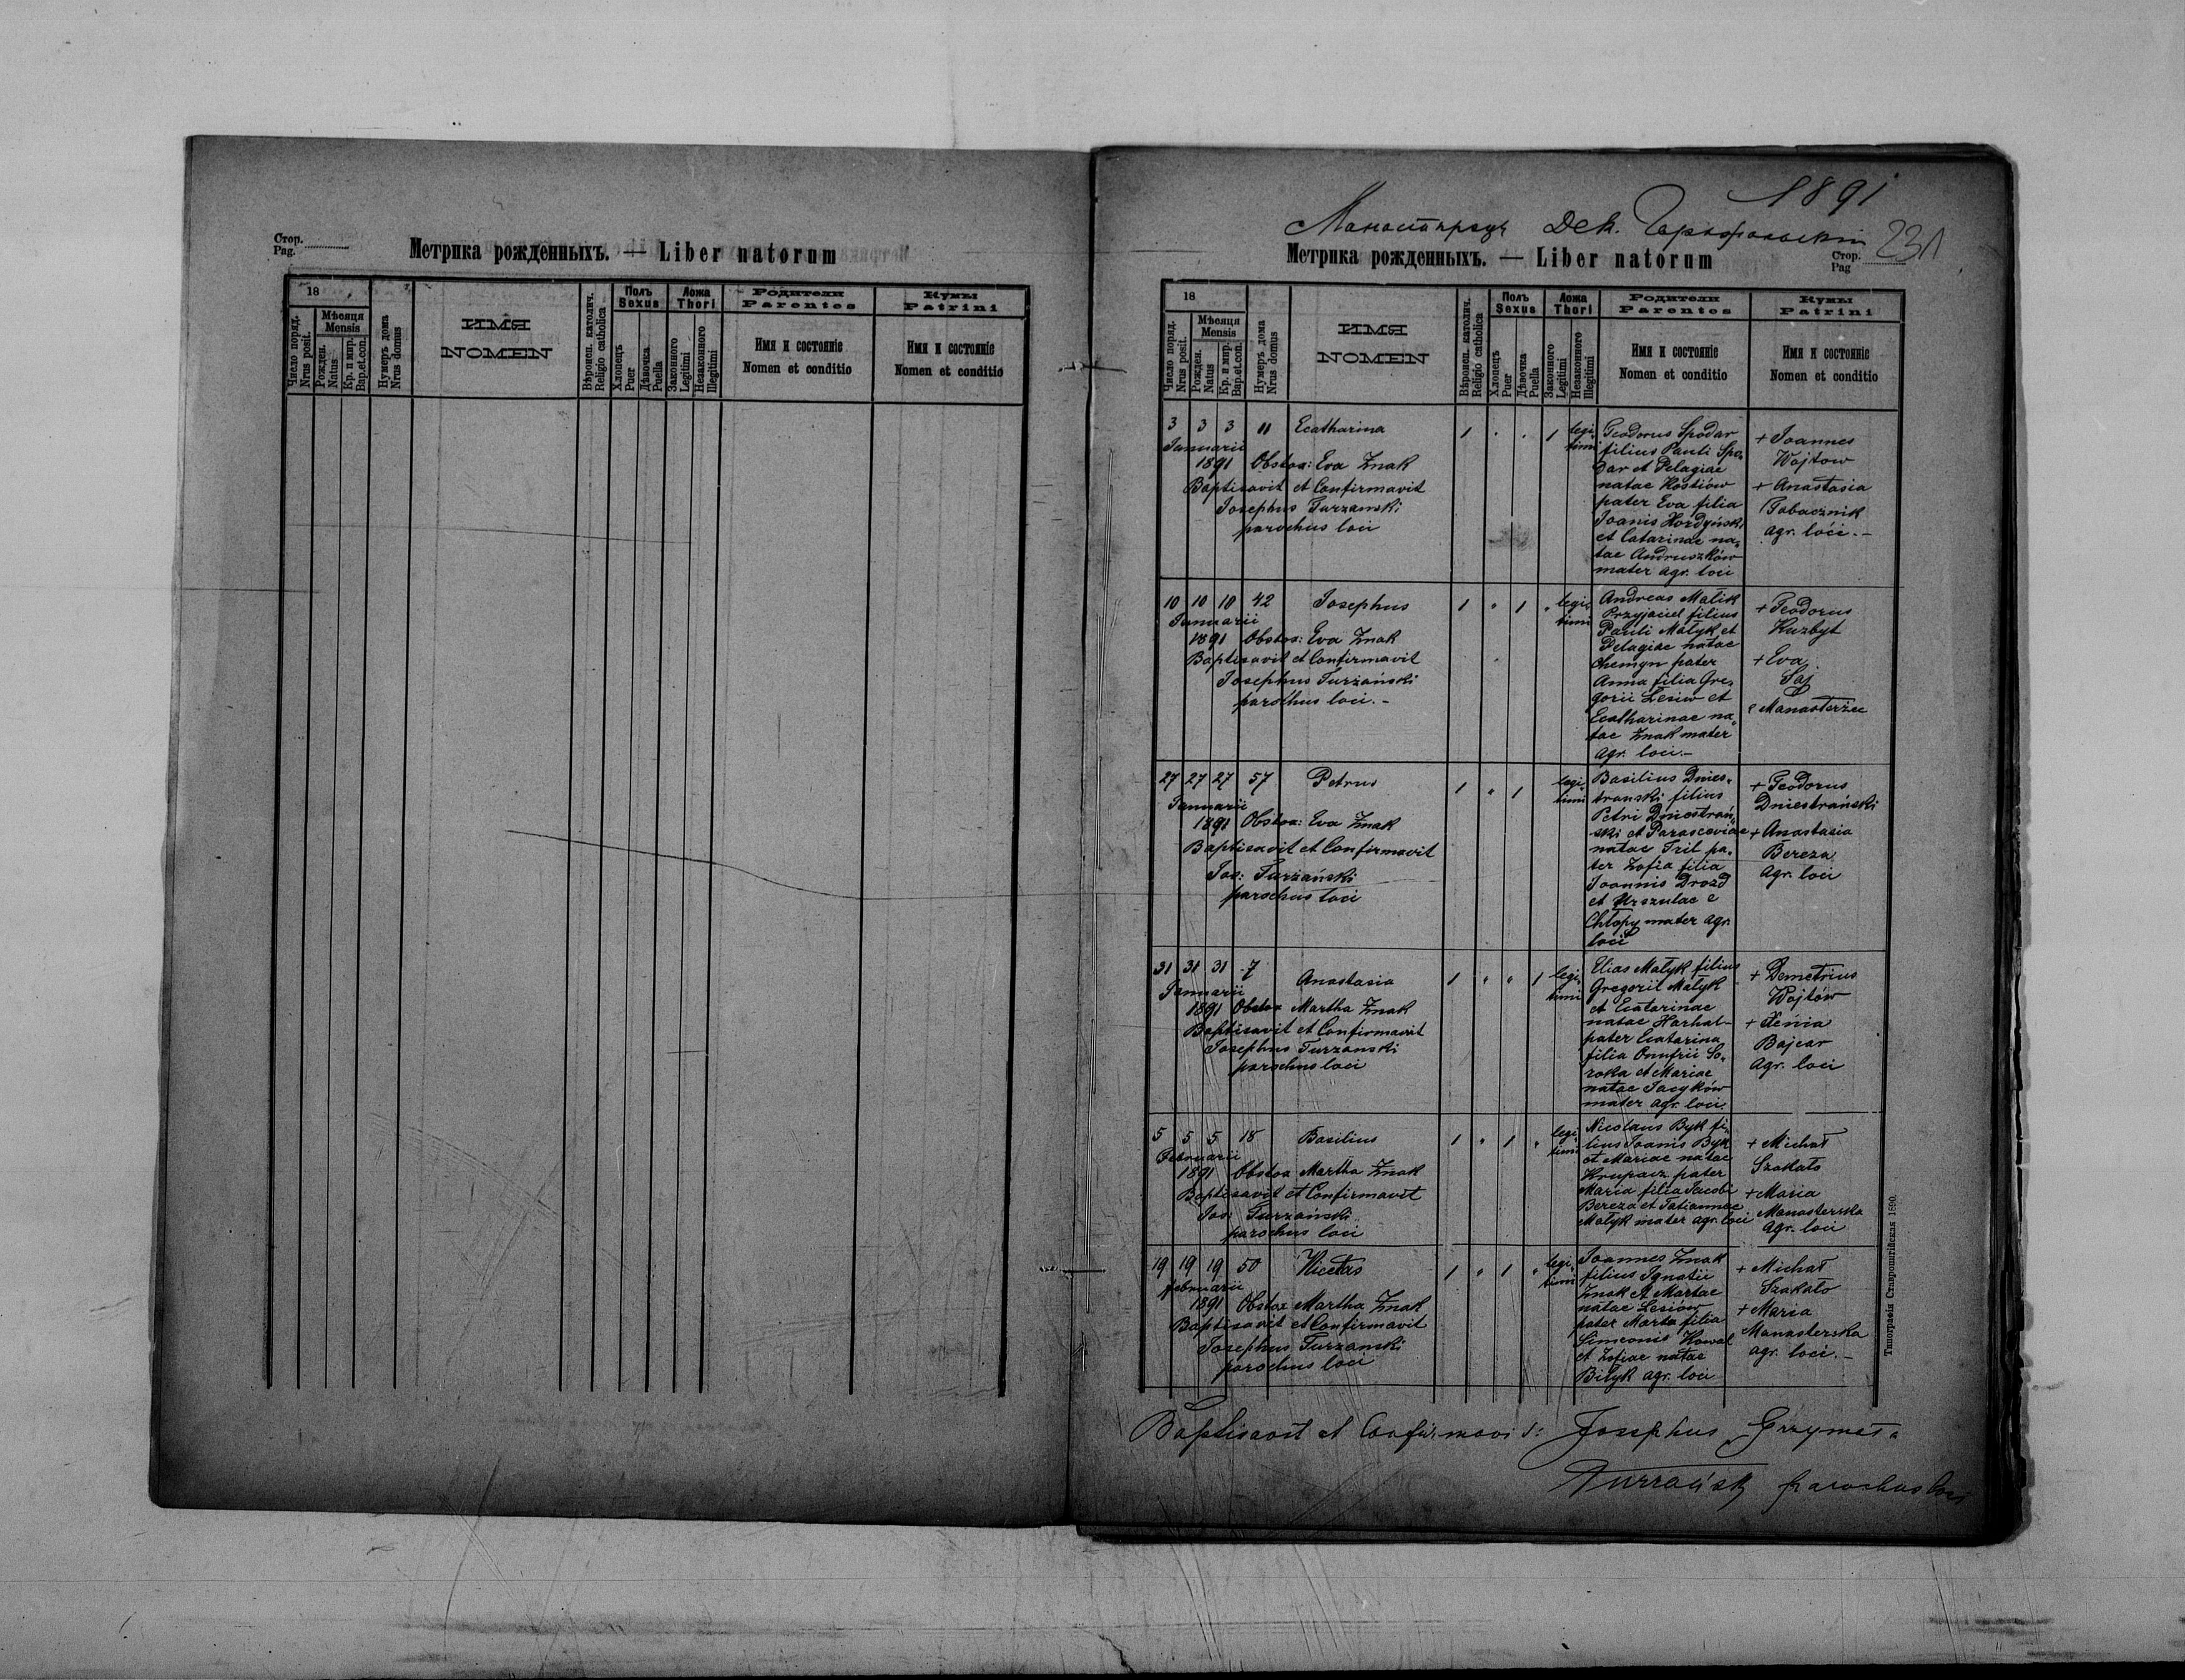 Стор.
Pag.
Метрика рожденныхъ. — Liber natorum
18
Число поряд.
Nrus posit.
Мѣсяця
Mensis
Рожден.
Natus
Кр. и мир.
Bap.et.con.
Нумеръ дома
Nrus domus
ИМЯ
NOMEN
Вѣроисп. католич.
Religio catholica
Полъ
Sexus
Хлопецъ
Puer
Дѣвочка
Puella
Ложа
Thori
Законного
Legitimi
Незаконного
Illegitimi
Родители
Parentes
Имя и состоянiе
Nomen et conditio
Кумы
Patrini
Имя и состоянiе
Nomen et conditio
1891
Дек.
231
Метрика рожденныхъ. — Liber natorum
Стор.
Pag
18
Число поряд.
Nrus posit.
Мѣсяця
Mensis
Рожден.
Natus
Кр. и мир.
Bap.et.con.
Нумеръ дома
Nrus domus
ИМЯ
NOMEN
Вѣроисп. католич.
Religio catholica
Полъ
Sexus
Хлопецъ
Puer
Дѣвочка
Puella
Ложа
Thori
Законного
Legitimi
Незаконного
Illegitimi
Родители
Parentes
Имя и состоянiе
Nomen et conditio
Кумы
Patrini
Имя и состоянiе
Nomen et conditio
3 3 3 11 Ecatharina 1 . . 1 legi-
timi
Januarii
1891 Obstox: Eva Znak
Baptisavit et Confirmavit
Josephus Turzanski
parochus loci
Teodorus Spodar
filius Pauli Spo-
dar et Pelagiae
natae Kostiów
pater Eva filia
Joanis Hordyński
et Catarinae na-
tae Andruszków
mater agr. loci
+ Joannes
Wojtow
+ Anastasia
Tobacznik
agr. loci. -
10 10 10 42 Josephus 1 " 1 " legi-
timi
Januarii
1891 Obstox: Eva Znak
Baptisavit et Confirmavit
Josephus Turzański
parochus loci. -
Andreas Malik
Przyjaciel filius
Pauli Małyk et
Pelagiae natae
Chemyn pater
Anna filia Gre-
gorii Lesiw et
Ecatharinae na-
tae Znak mater
agr. loci. -
+ Teodorus
Kuzbyt
+ Eva
Saj
e Manasterzec
27 27 27 57 Petrus 1 " 1 legi-
timi
Januarii
1891 Obstox: Eva Znak
Baptisavit et Confirmavit
Jos: Turzański
parochus loci
Basilius Dnies-
transki filius
Petri Dniestrań-
ski et Parasceviae
natae Tril pa-
ter Zofia filia
Joannis Drozd
et Urszulae e
Chłopy mater agr.
loci
+ Teodorus
Dniestrański
+ Anastasia
Bereza
agr. loci
31 31 31 7 Anastasia 1 " " 1 legi-
timi
Januarii
1891 Obstox Martha Znak
Baptisavit et Confirmavit
Josephus Turzanski
parochus loci
Elias Małyk filius
Gregorii Małyk
et Ecatarinae
natae Harhat-
pater Ecatarina
filia Onufrii So-
roka et Mariae
natae Jacyków
mater agr. loci.
+ Demetrius
Wojtów
+ Xenia
Bajcar
agr. loci
5 5 5 18 Basilius 1 " 1 " legi-
timi
Februarii
1891 Obstox Martha Znak
Baptisavit et Confirmavit
Jos: Turzański
parochus loci
Nicolaus Byk fi-
lius Joanis Byk
et Mariae natae
Krupacz pater
Maria filia Jacobi
Bereza et Tatiannae
Małyk mater agr. loci
+ Michał
Szakało
+ Maria
Manasterska
agr. loci
19 19 19 50 Nicetas 1 " 1 " legi-
timi
februarii
1891 Obstox Martha Znak
Baptisavit et Confirmavit
Josephus Turzanski
parochus loci
Joannes Znak
filius Ignatii
Znak et Martae
natae Lesiow
pater Marta filia
Simeonis Kowal
et Zofiae natae
Bilyk agr. loci
+ Michał
Szakało
+ Maria
Manasterska
agr. loci. -
Типографiя Ставропигiйская 1890.
Baptisavit et Confirmavit: Josephus Grzymała
Turzański parochus loci